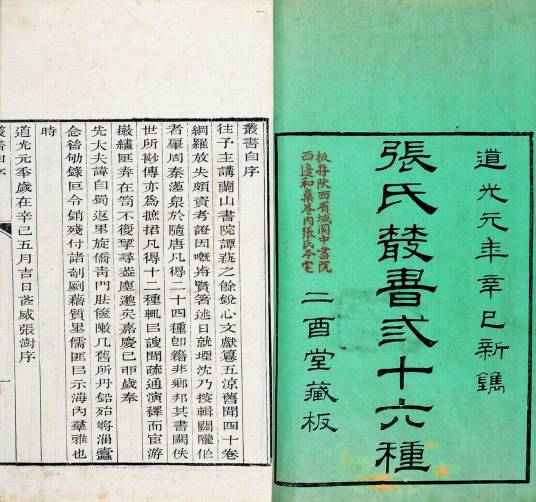 道光元年辛巳新鐫
張氏叢書弍十六種
板存陝西省城關中書院
西邊和巷內張氏本宅
二酉堂藏板
叢書自序
往予主講蘭山書院譚埶之餘銳心文獻纂五涼舊聞四十卷
網羅放失頗資考證因嘅歬賢箸述日就堙沈乃按輯關隴作
者肇周秦漢泉於隨唐凡得二十四種卽籍非鄉邦其書闕佚
世所尟傳亦爲摭捃凡得十二種輒㠯謏聞疏通演繹而宦游
繣匪弆在笥不復尋塵矣嘉慶己卯歲奉
先大夫諱自蜀返里旋僑靑門胠篋几舊所丹鉛殆將蠹
念劬錄叵令銷殘付諸剞劂藉質儒匪㠯示海內羣雅也
時
道光元秊歲在辛巳五月吉日武威張澍序
叢書自序 一